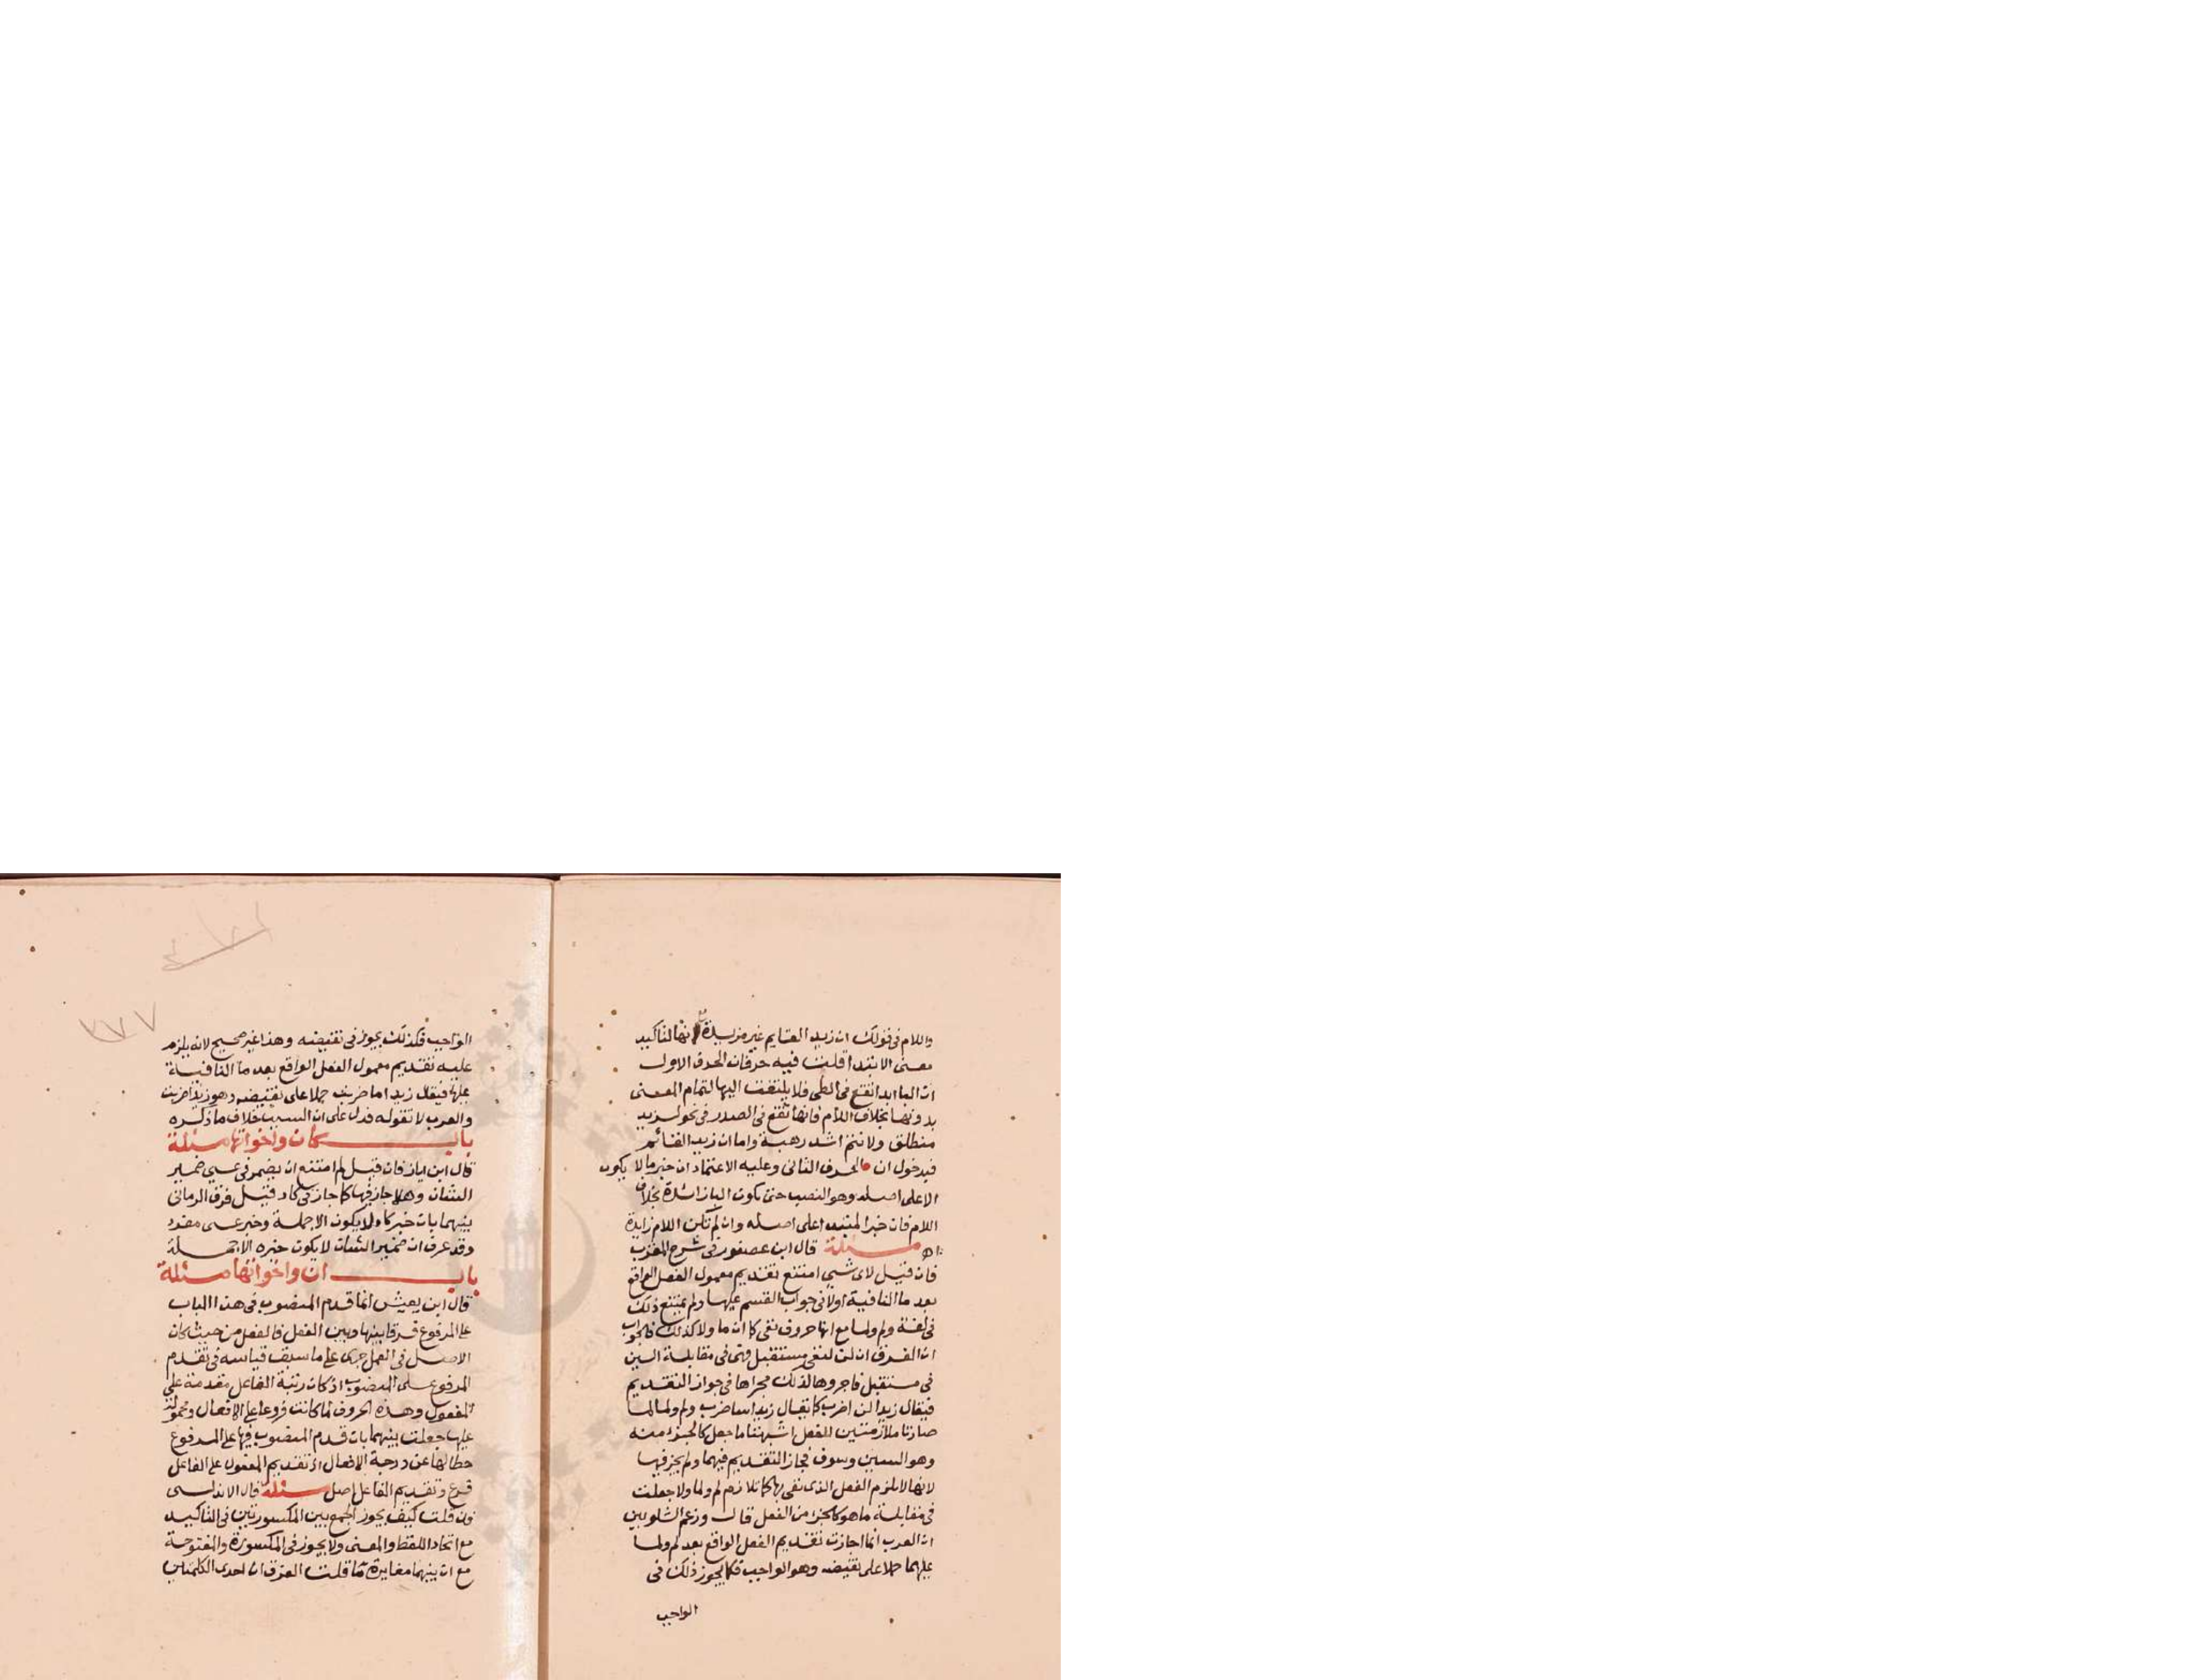 واللام في قولك ان زيدا لقايم غير مزيدة لانها لتاكيد
معنى الابتدا قلت فيه حرفان الحرف الاول
ان الباء ابدا تقع في الطي فلا يلتفت اليها لتمام المعنى
بدونها بخلاف اللام فانها تقع في الصدر في نحو لزيد
منطلق ولانتم اشد رهبة واما ان زيدا لقائم
فبدخول ان والحرف الثاني وعليه الاعتماد ان خبر ما لا يكون
الا على اصله وهو النصب حتى تكون الباء زائدة بخلاف
اللام فان خبر المبتدا على اصله وان لم تكن اللام زايدة
اه مسئلة قال ابن عصفور في شرح المقرب
فان قيل لاى شي امتنع تقديم معمول الفعل الواقع
بعد ما النافية اولا في جواب القسم عليها ولم يمتنع ذلك
في لن ولم ولما مع انها حروف نفي كما ان ما ولا كذلك فالجواب
ان الفرق ان لن لنفي مستقبل فهي في مقابلة السين
في مستقبل فاجروها لذلك مجراها في جواز التقديم
فيقال زيدا لن اضرب كما يقال زيدا ساضرب ولم ولما لما
صارتا ملازمتين للفعل اشبهتا ما جعل كالجزء منه
وهو السين وسوف فجاز التقديم فيهما ولم يجز فيها
لانها لا تلزم الفعل الذى نفي بها كما تلازم لم ولما ولا جعلت
في مقابلة ما هو كالجزء من الفعل قال وزعم الشلوبين
ان العرب انما اجازت تقديم الفعل الواقع بعد لم ولما
عليهما حملا على نقيضه وهو الواجب فكما يجوز ذلك في
الواجب
٢٧٧
الواجب فكذلك يجوز في نقيضه وهذا غير صحيح لانه يلزم
عليه تقديم معمول الفعل الواقع بعد ما النافية
عليها فيقال زيدا ما ضربت حملا على نقيضه وهو زيدا ضربت
والعرب لا تقوله فدل على ان السبب خلاف ما ذكره
باب كان واخواتها مسئلة
قال ابن اياز فان قيل لم امتنع ان يضمر في عسى ضمير
الشان وهلا جاز فيها كما جاز في كاد فقيل فرق الرماني
بينهما بان خبر كاد لا يكون الا جملة وخبر عسى مفرد
وقد عرف ان ضمير الشان لا يكون خبره الا جملة
باب ان واخواتها مسئلة
قال ابن يعيش انما قدم المنصوب في هذا الباب
على المرفوع فرقا بينها وبين الفعل فالفعل من حيث كان
الاصل في العمل جرى على ما سبق قياسه في تقدم
المرفوع على المنصوب اذ كان رتبة الفاعل مقدمة على
المفعول وهذه الحروف لما كانت فروعا على الافعال ومحمولة
عليها جعلت بينهما بان قدم المنصوب فيها على المرفوع
حطا لها عن درجة الافعال اذ تقديم المفعول على الفاعل
فرع وتقديم الفاعل اصل مسئلة قال الاندلسي
فان قلت كيف يجوز الجمع بين المكسورتين في التاكيد
مع اتحاد اللفظ والمعنى ولا يجوز في المكسورة والمفتوحة
مع ان بينهما مغايرة ما قلت الفرق ان احدى الكلمتين